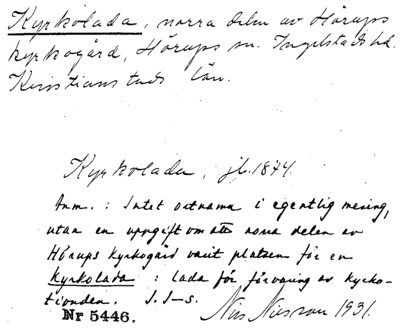 Kyrkolada, norra delen av Hörups
kyrkogård, Hörups sn. Ingelstads hd.
Kristianstads län.
Kyrkolada, jb. 1874.
Anm.: Intet ortnamn i egentlig mening,
utan en uppgift om att norra delen av
Hörups kyrkogård varit platsen för en
kyrkolada : lada för förvaring av kyrko-
tionden. I. I-s.
Nr 5446. Nils Nilsson 1931.